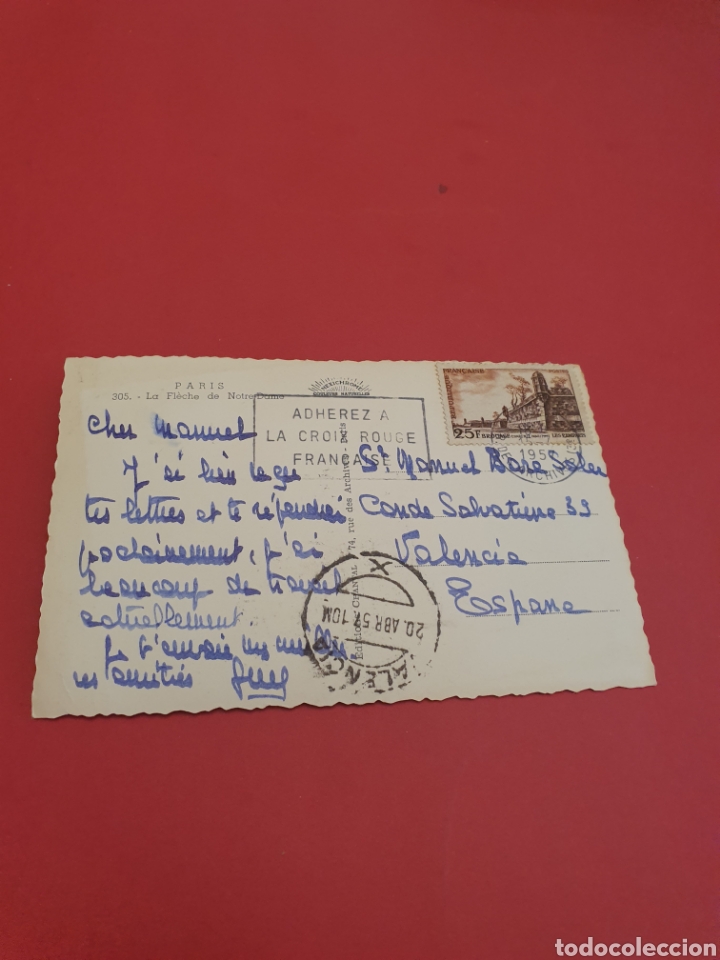 PARIS
305. - La Flèche de Notre-Dame
COULEURS NATURELLES
ADHEREZ A
LA CROIX ROUGE
FRANÇAISE
REPUBLIQUE FRANÇAISE
25F BROUAGE
195
Cher Manuel
J'ai bien reçu
tes lettres et te répondrai
prochainement, j'ai
beaucoup de travail
actuellement.
Je t'envoie mes meilleu-
res amitiés
Editions CHANTAL, 74, rue des Archives - Paris
Sr Manuel Soler
Conde Salvatierra 39
Valencia
Espana
VALENCIA
20 ABR 57 10M
X
todocoleccion